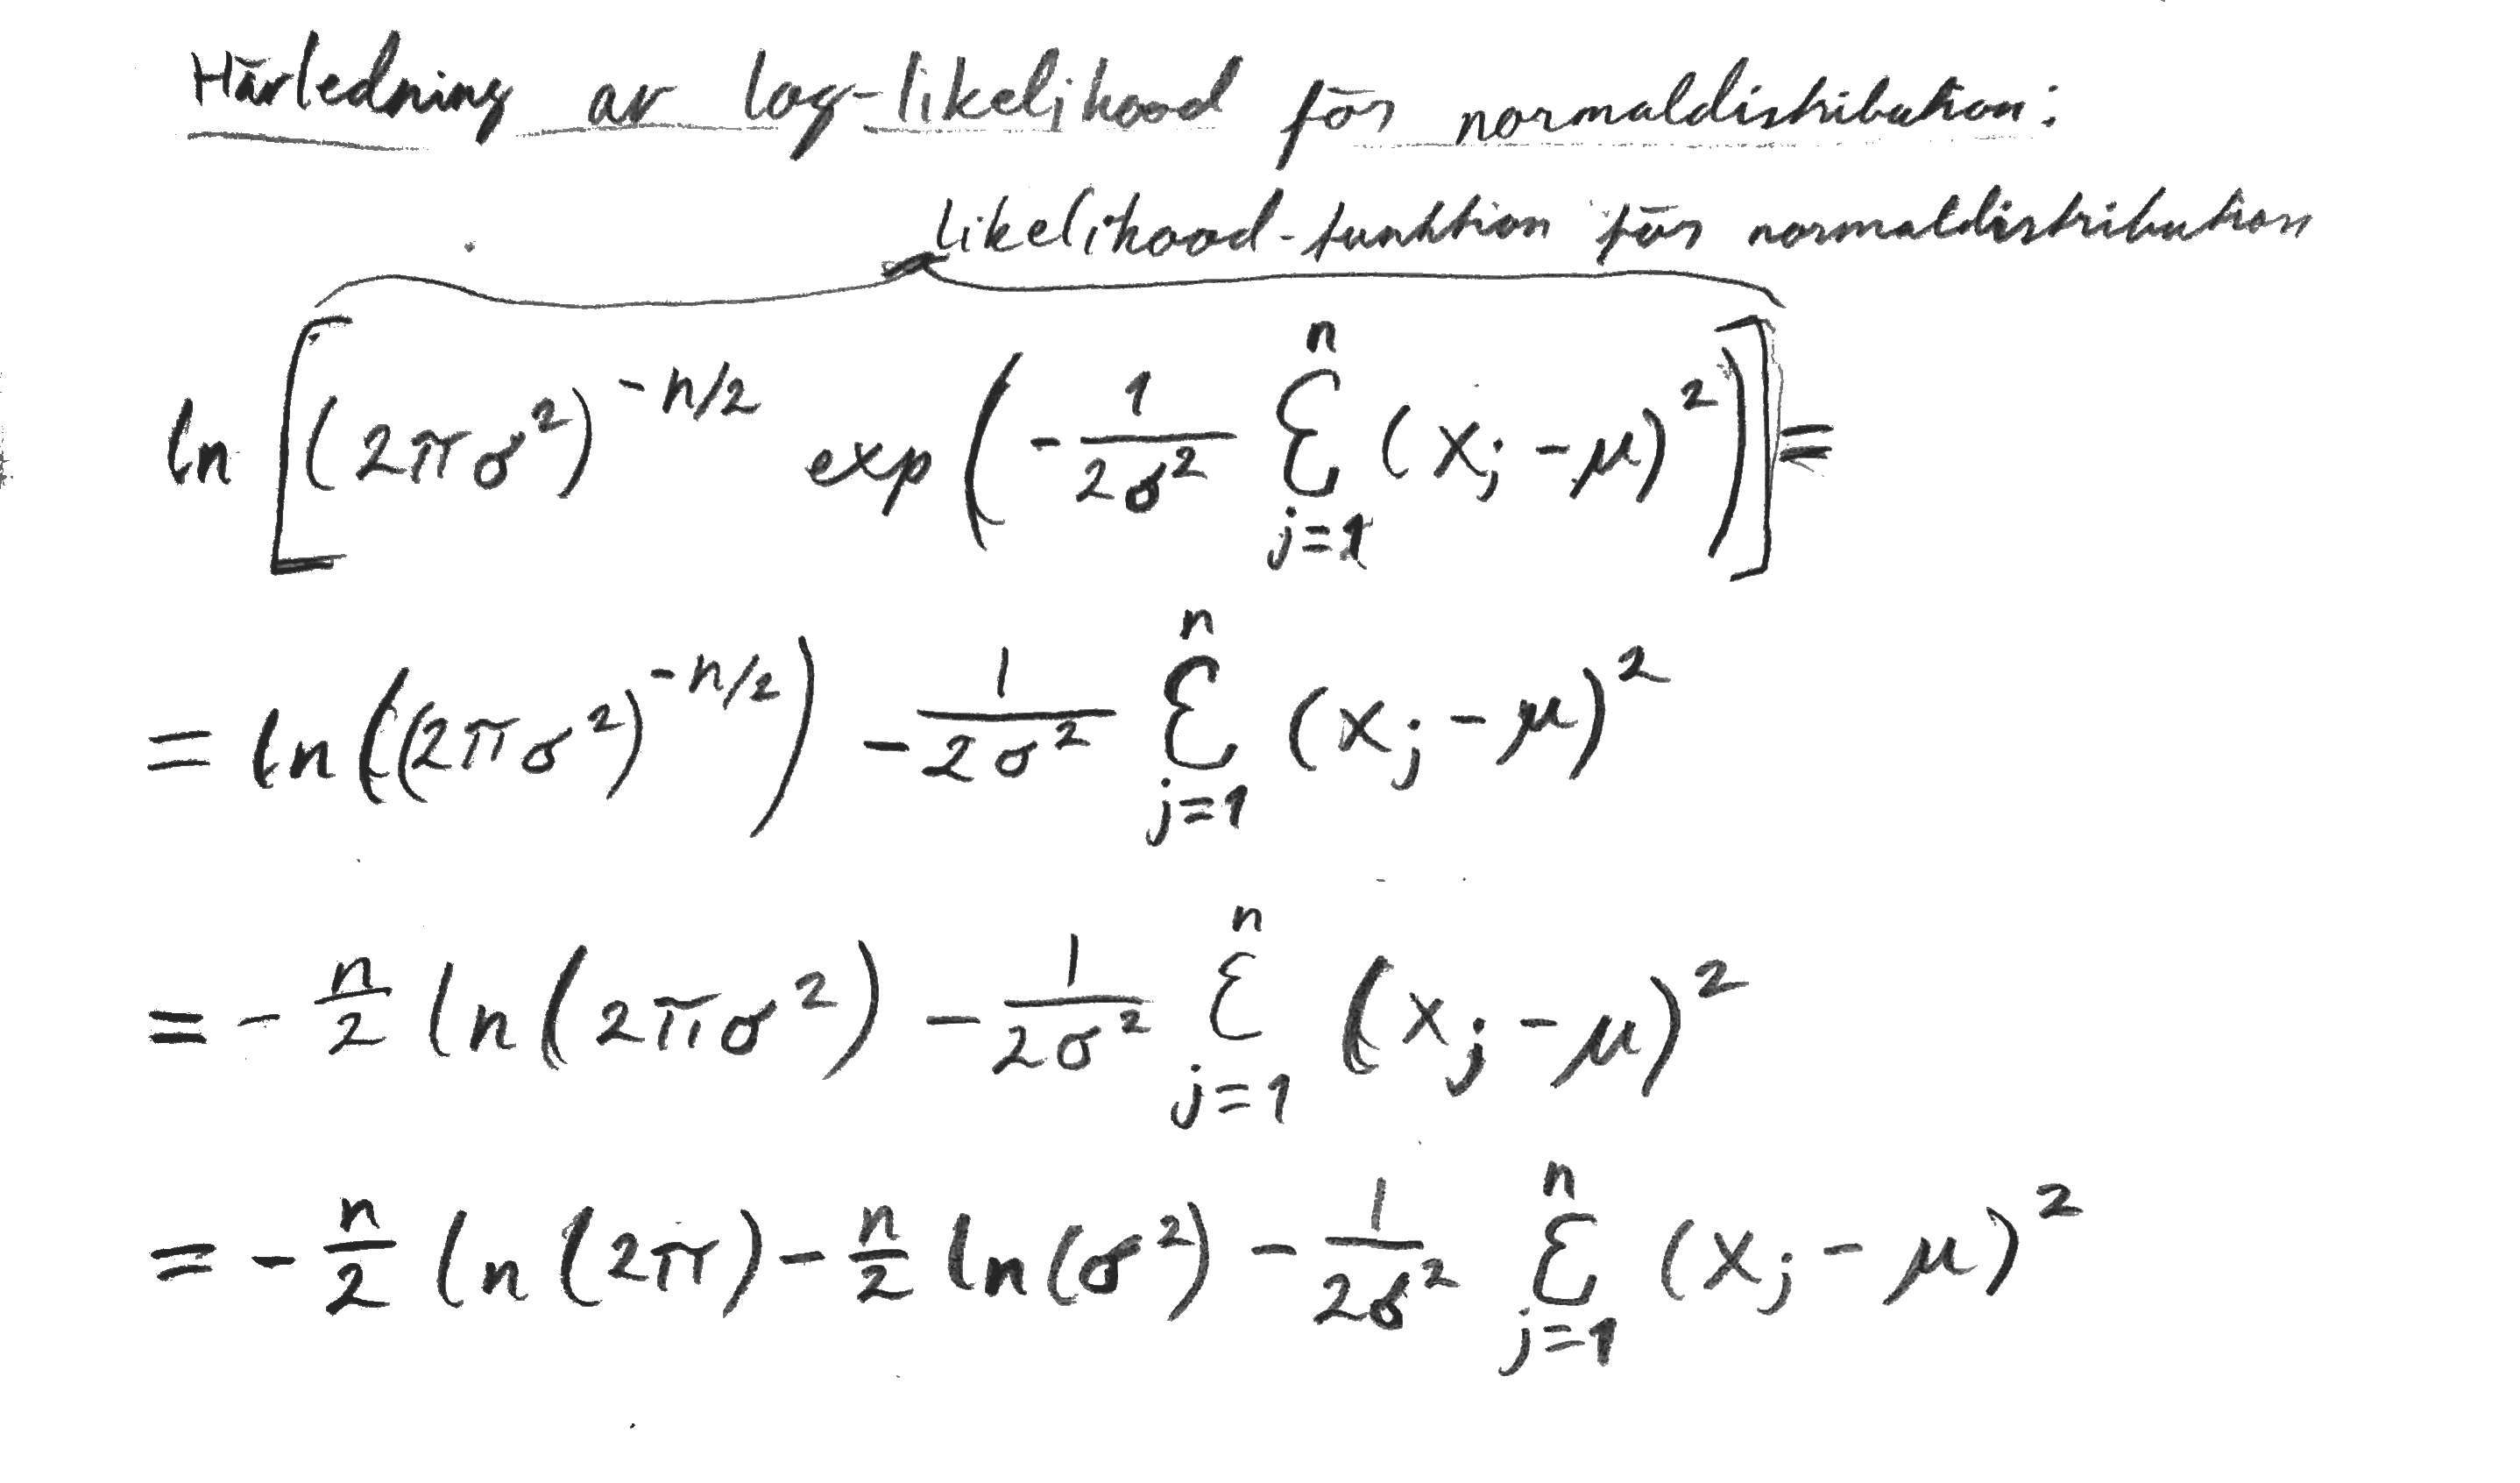 Härledning av log-likelihood för normaldistribution:
likelihood-funktion för normaldistribution
ln [(2πσ²)^(-n/2) exp(-1/(2σ²) Σ_{j=1}^{n} (x_j - μ)²)] =
= ln((2πσ²)^(-n/2)) - 1/(2σ²) Σ_{j=1}^{n} (x_j - μ)²
= - n/2 ln(2πσ²) - 1/(2σ²) Σ_{j=1}^{n} (x_j - μ)²
= - n/2 ln(2π) - n/2 ln(σ²) - 1/(2σ²) Σ_{j=1}^{n} (x_j - μ)²